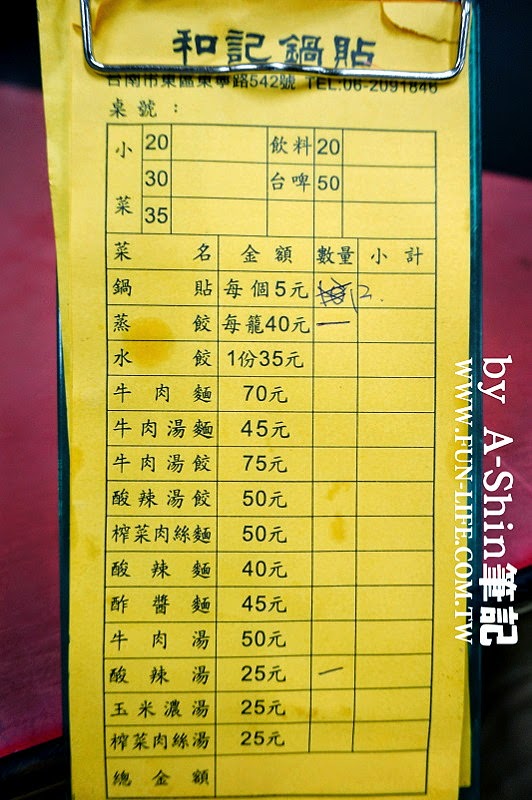 和記鍋貼
台南市東區東寧路542號 TEL:06-2091846
桌號：
小菜 20 飲料 20
30 台啤 50
35
菜名 金額 數量 小計
鍋貼 每個5元 12
蒸餃 每籠40元 一
水餃 1份35元
牛肉麵 70元
牛肉湯麵 45元
牛肉湯餃 75元
酸辣湯餃 50元
榨菜肉絲麵 50元
酸辣麵 40元
酢醬麵 45元
牛肉湯 50元
酸辣湯 25元 一
玉米濃湯 25元
榨菜肉絲湯 25元
總金額
by A-Shin筆記
WWW.FUN-LIFE.COM.TW